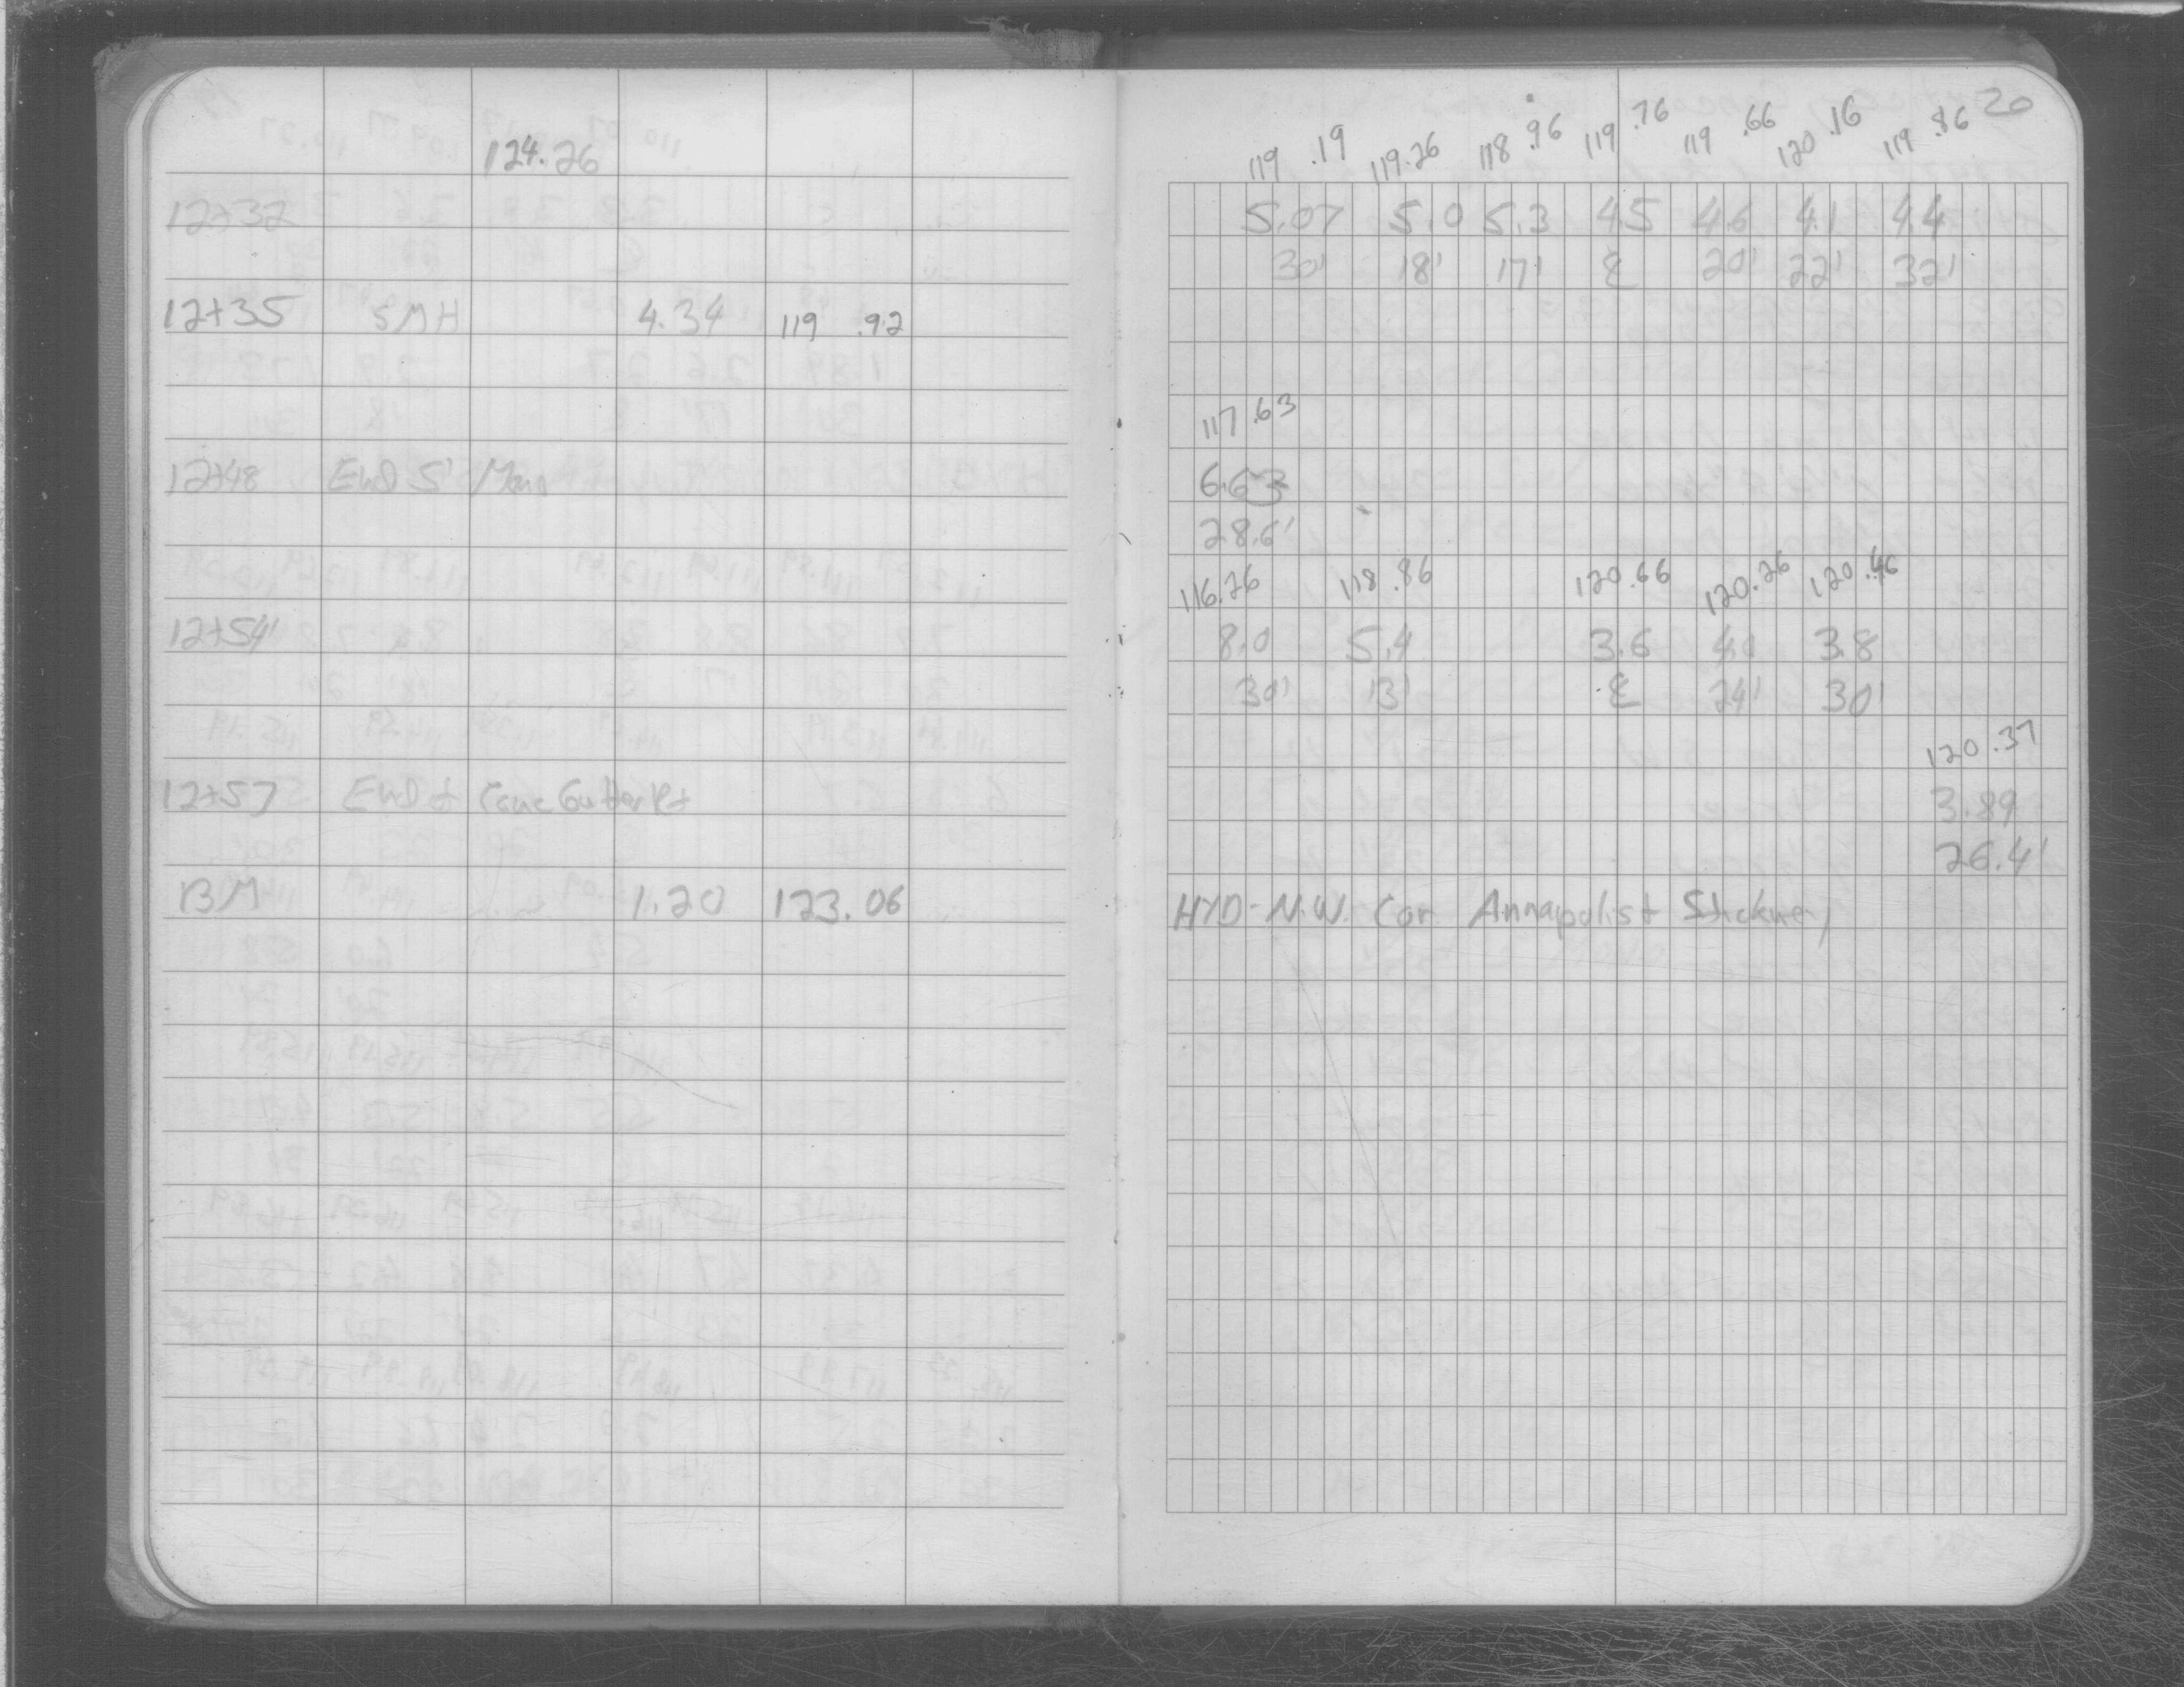 124.26
12+32
12+35 SMH 4.34 119.92
12+48 End S'
12+54
12+57 End Conc Gutter Rt
BM 1.20 123.06
20
119.19 119.26 118.96 119.76 119.66 120.16 119.86
5.07 5.0 5.3 4.5 4.6 4.1 4.4
30' 18' 17' ℄ 20' 22' 32'
117.63
6.63
28.6'
116.26 118.86 120.66 120.26 120.46
8.0 5.4 3.6 4.0 3.8
30' 13' ℄ 24' 30'
120.37
3.89
26.4'
HYD-N.W. Cor. Annapolis + Stickney